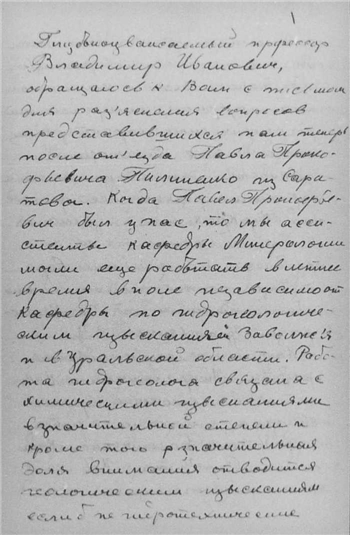 1
Глубокоуважаемый профессор
Владимир Иванович,
обращаюсь к Вам с письмом
для раз'яснения вопросов
представившихся нам теперь
после от'езда Павла Проко-
фьевича Пилипенко из Сара-
това. Когда Павел Прокофье-
вич был у нас, то мы асси-
стенты кафедры Минералогии
могли еще работать в летнее
время в поле независимо от
кафедры по гидрогеологиче-
ским изысканиям Заволжья
и в Уральской области. Рабо-
та гидрогеолога связана с
химическими изысканиями
в значительной степени и
кроме того значительная
доля внимания отводится
геологическим изысканиям
если б не гидротехнические